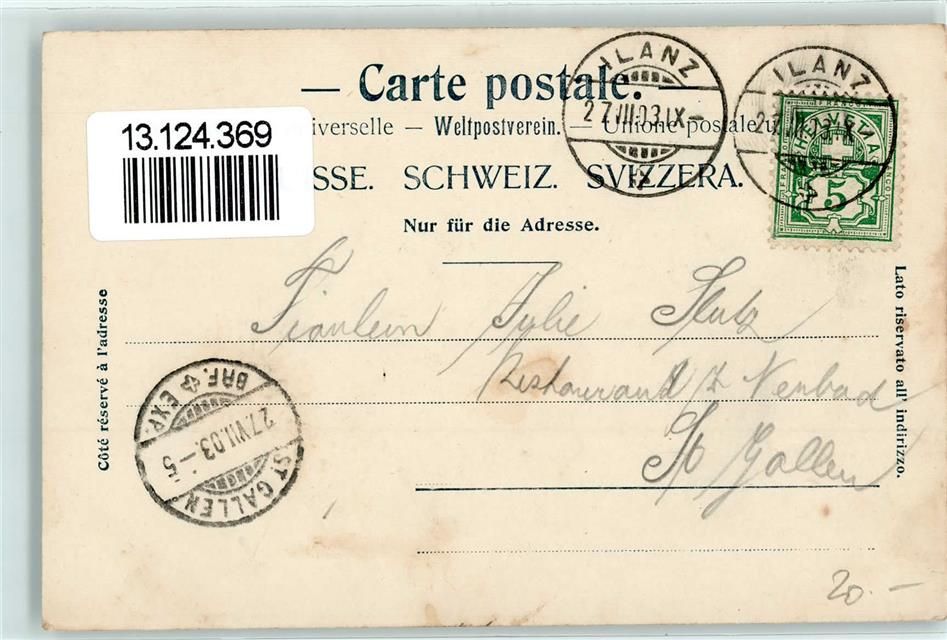 — Carte postale. —
13.124.369
iverselle — Weltpostverein. — Unione postale u
SSE. SCHWEIZ. SVIZZERA.
Nur für die Adresse.
ILANZ
27.VII.03.IX–
ILANZ
27.VII.03.IX–
FRANCO
HELVETIA
5
Côté réservé à l'adresse
Lato riservato all' indirizzo.
Fräulein Julie Stutz
Restaurant z Neubad
St Gallen
BRF. EXP.
27.VII.03.–5
ST. GALLEN
20.–